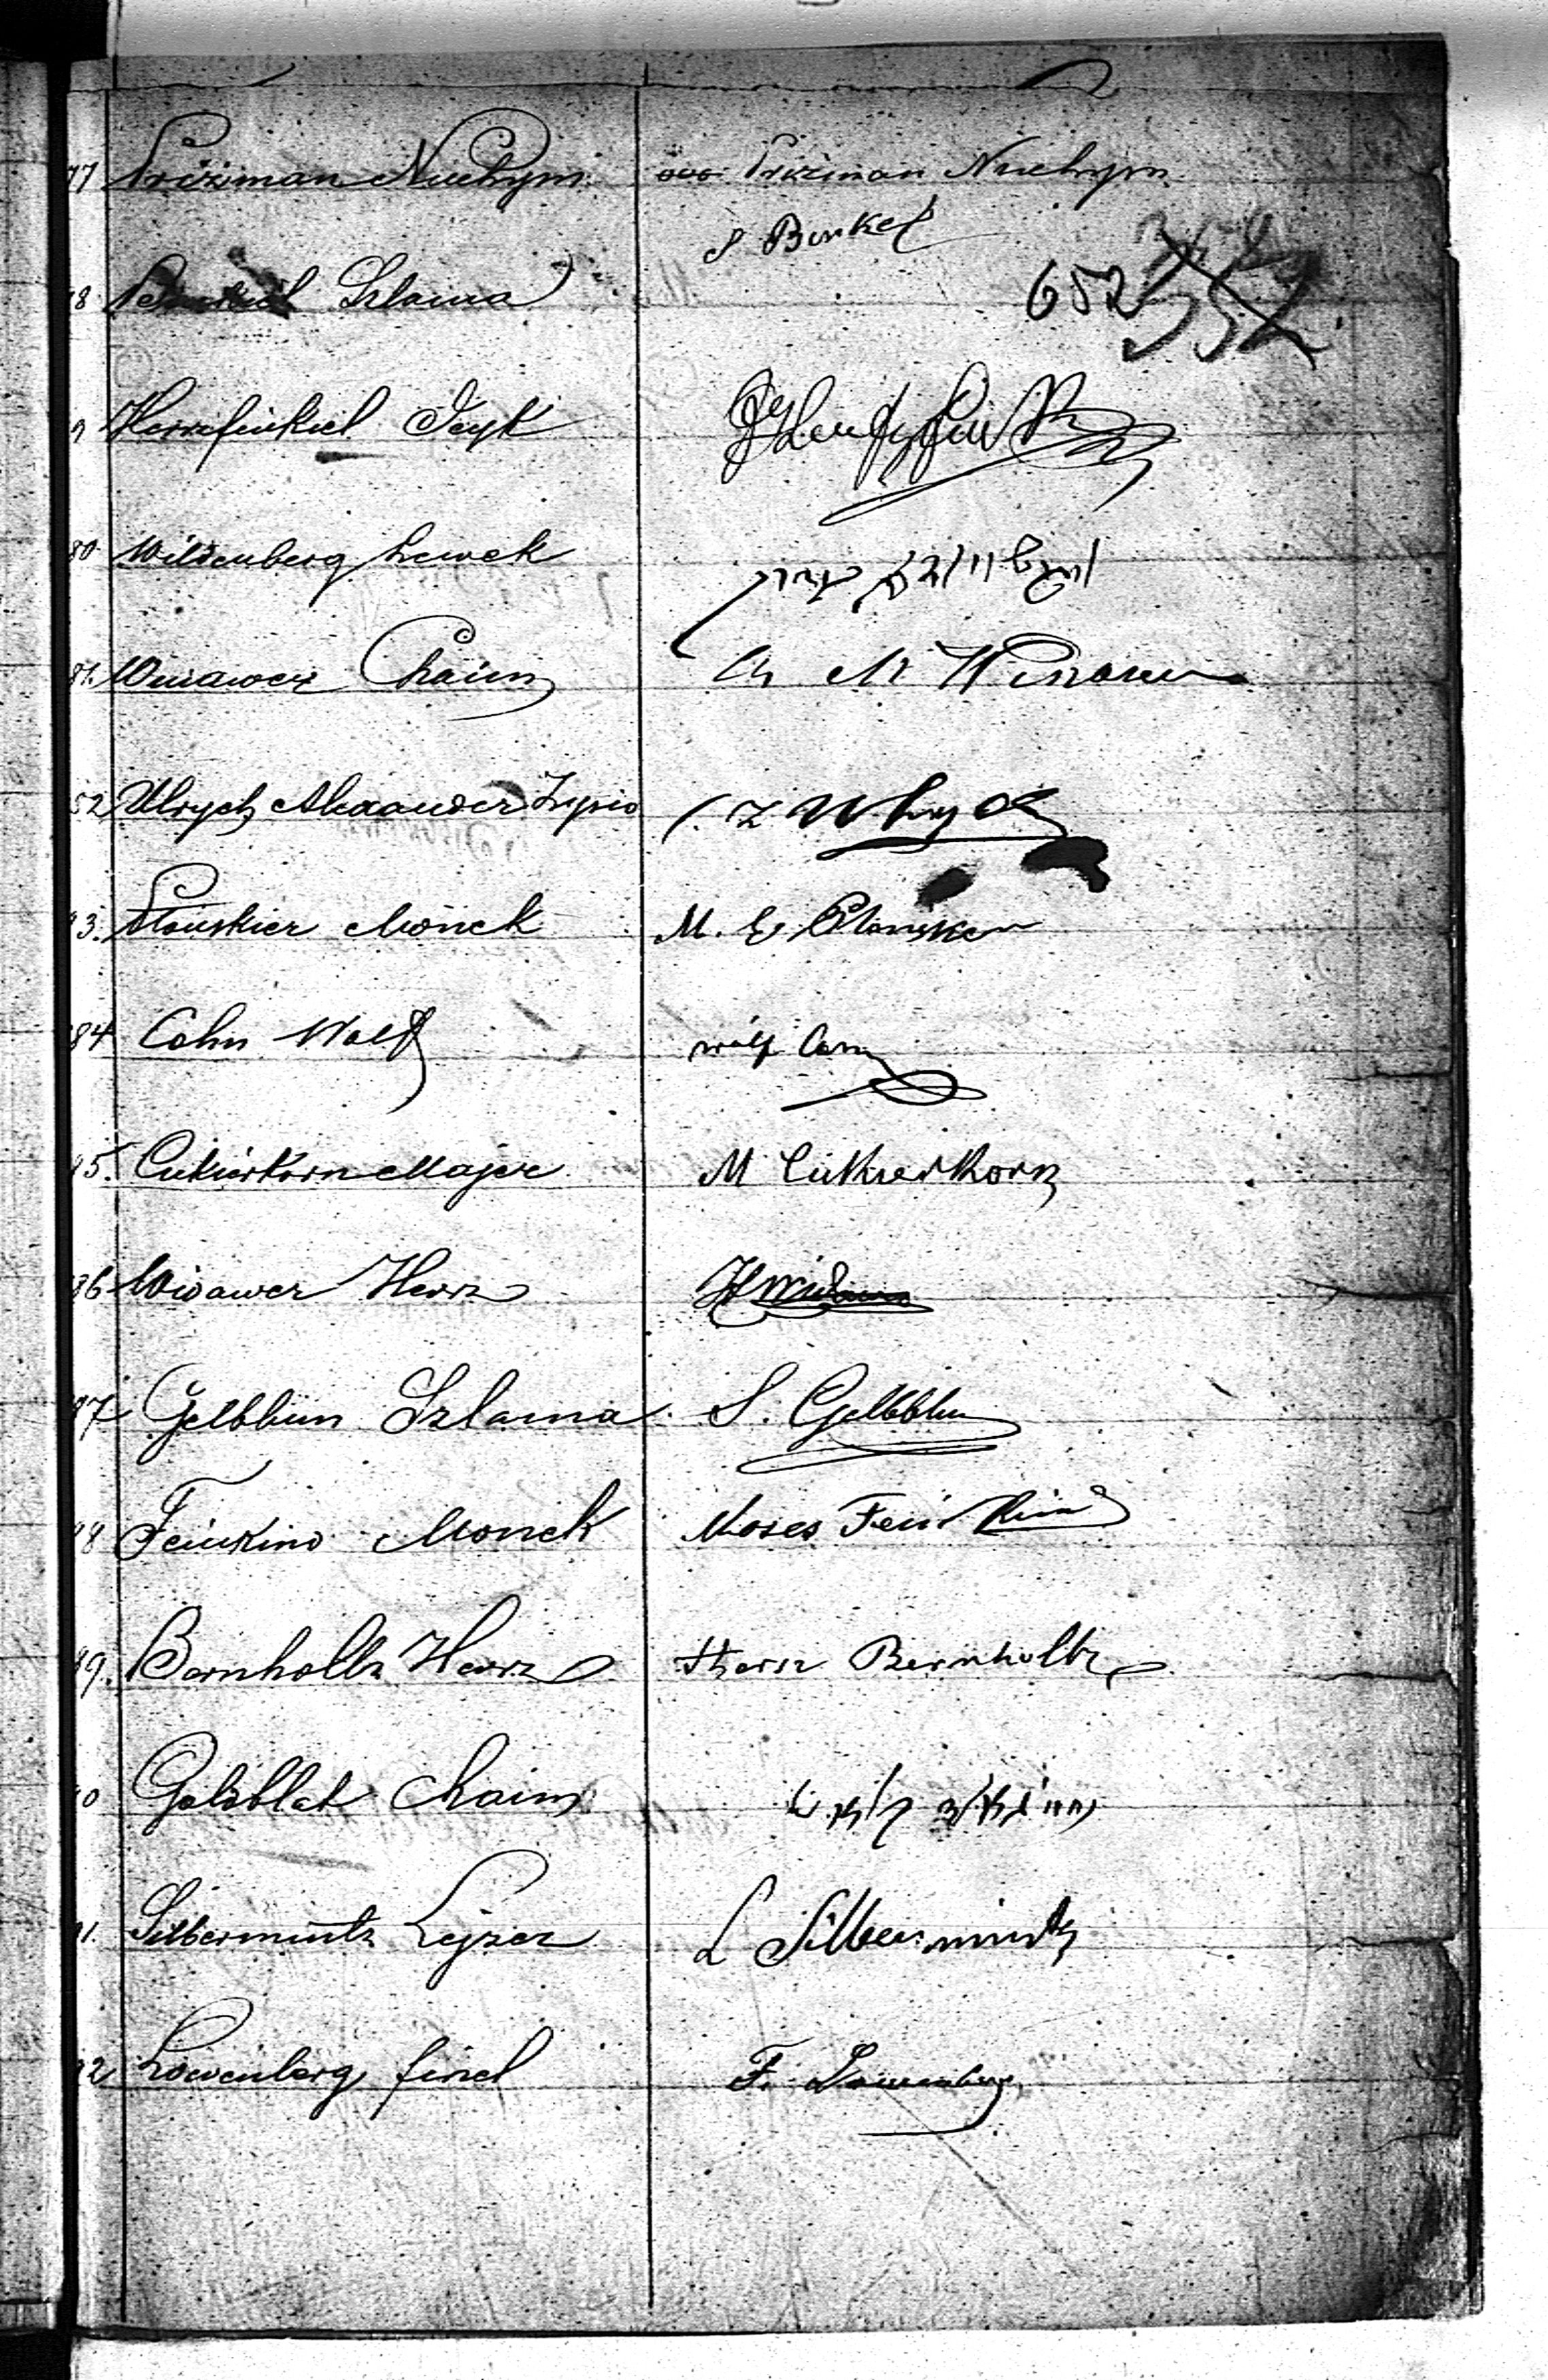 77 Prizman Nuchym Prizman Nuchym
S Binkel
8 Szlama 652
9 Herszfinkiel Icyk
80 Wildenberg Lewek
81. Winawer Chaim Ch M Winawer
82 Ulrych Alexander Z Ulrych
83. Płońskier Monek M. Płońskier
84 Cohn Wolf Wolf Cohn
85. Cukierkorn Majer M Cukierkorn
86 Widawer Hersz H Widawer
87 Gelbblum Szlama S. Gelbblum
88 Feinkind Monek Moses Feinkind
89. Bernholtz Hersz Hersz Bernholtz
90 Goldblat Chaim
91. Silbermintz Lejzer L Silbermintz
92 Lowenberg Fiszel F. Lowenberg